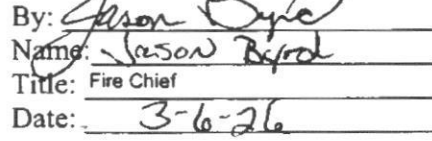 By: Jason Byrd
Name: Jason Byrd
Title: Fire Chief
Date: 3-6-26